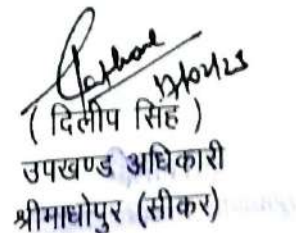 17/02/23
( दिलीप सिंह )
उपखण्ड अधिकारी
श्रीमाधोपुर (सीकर)